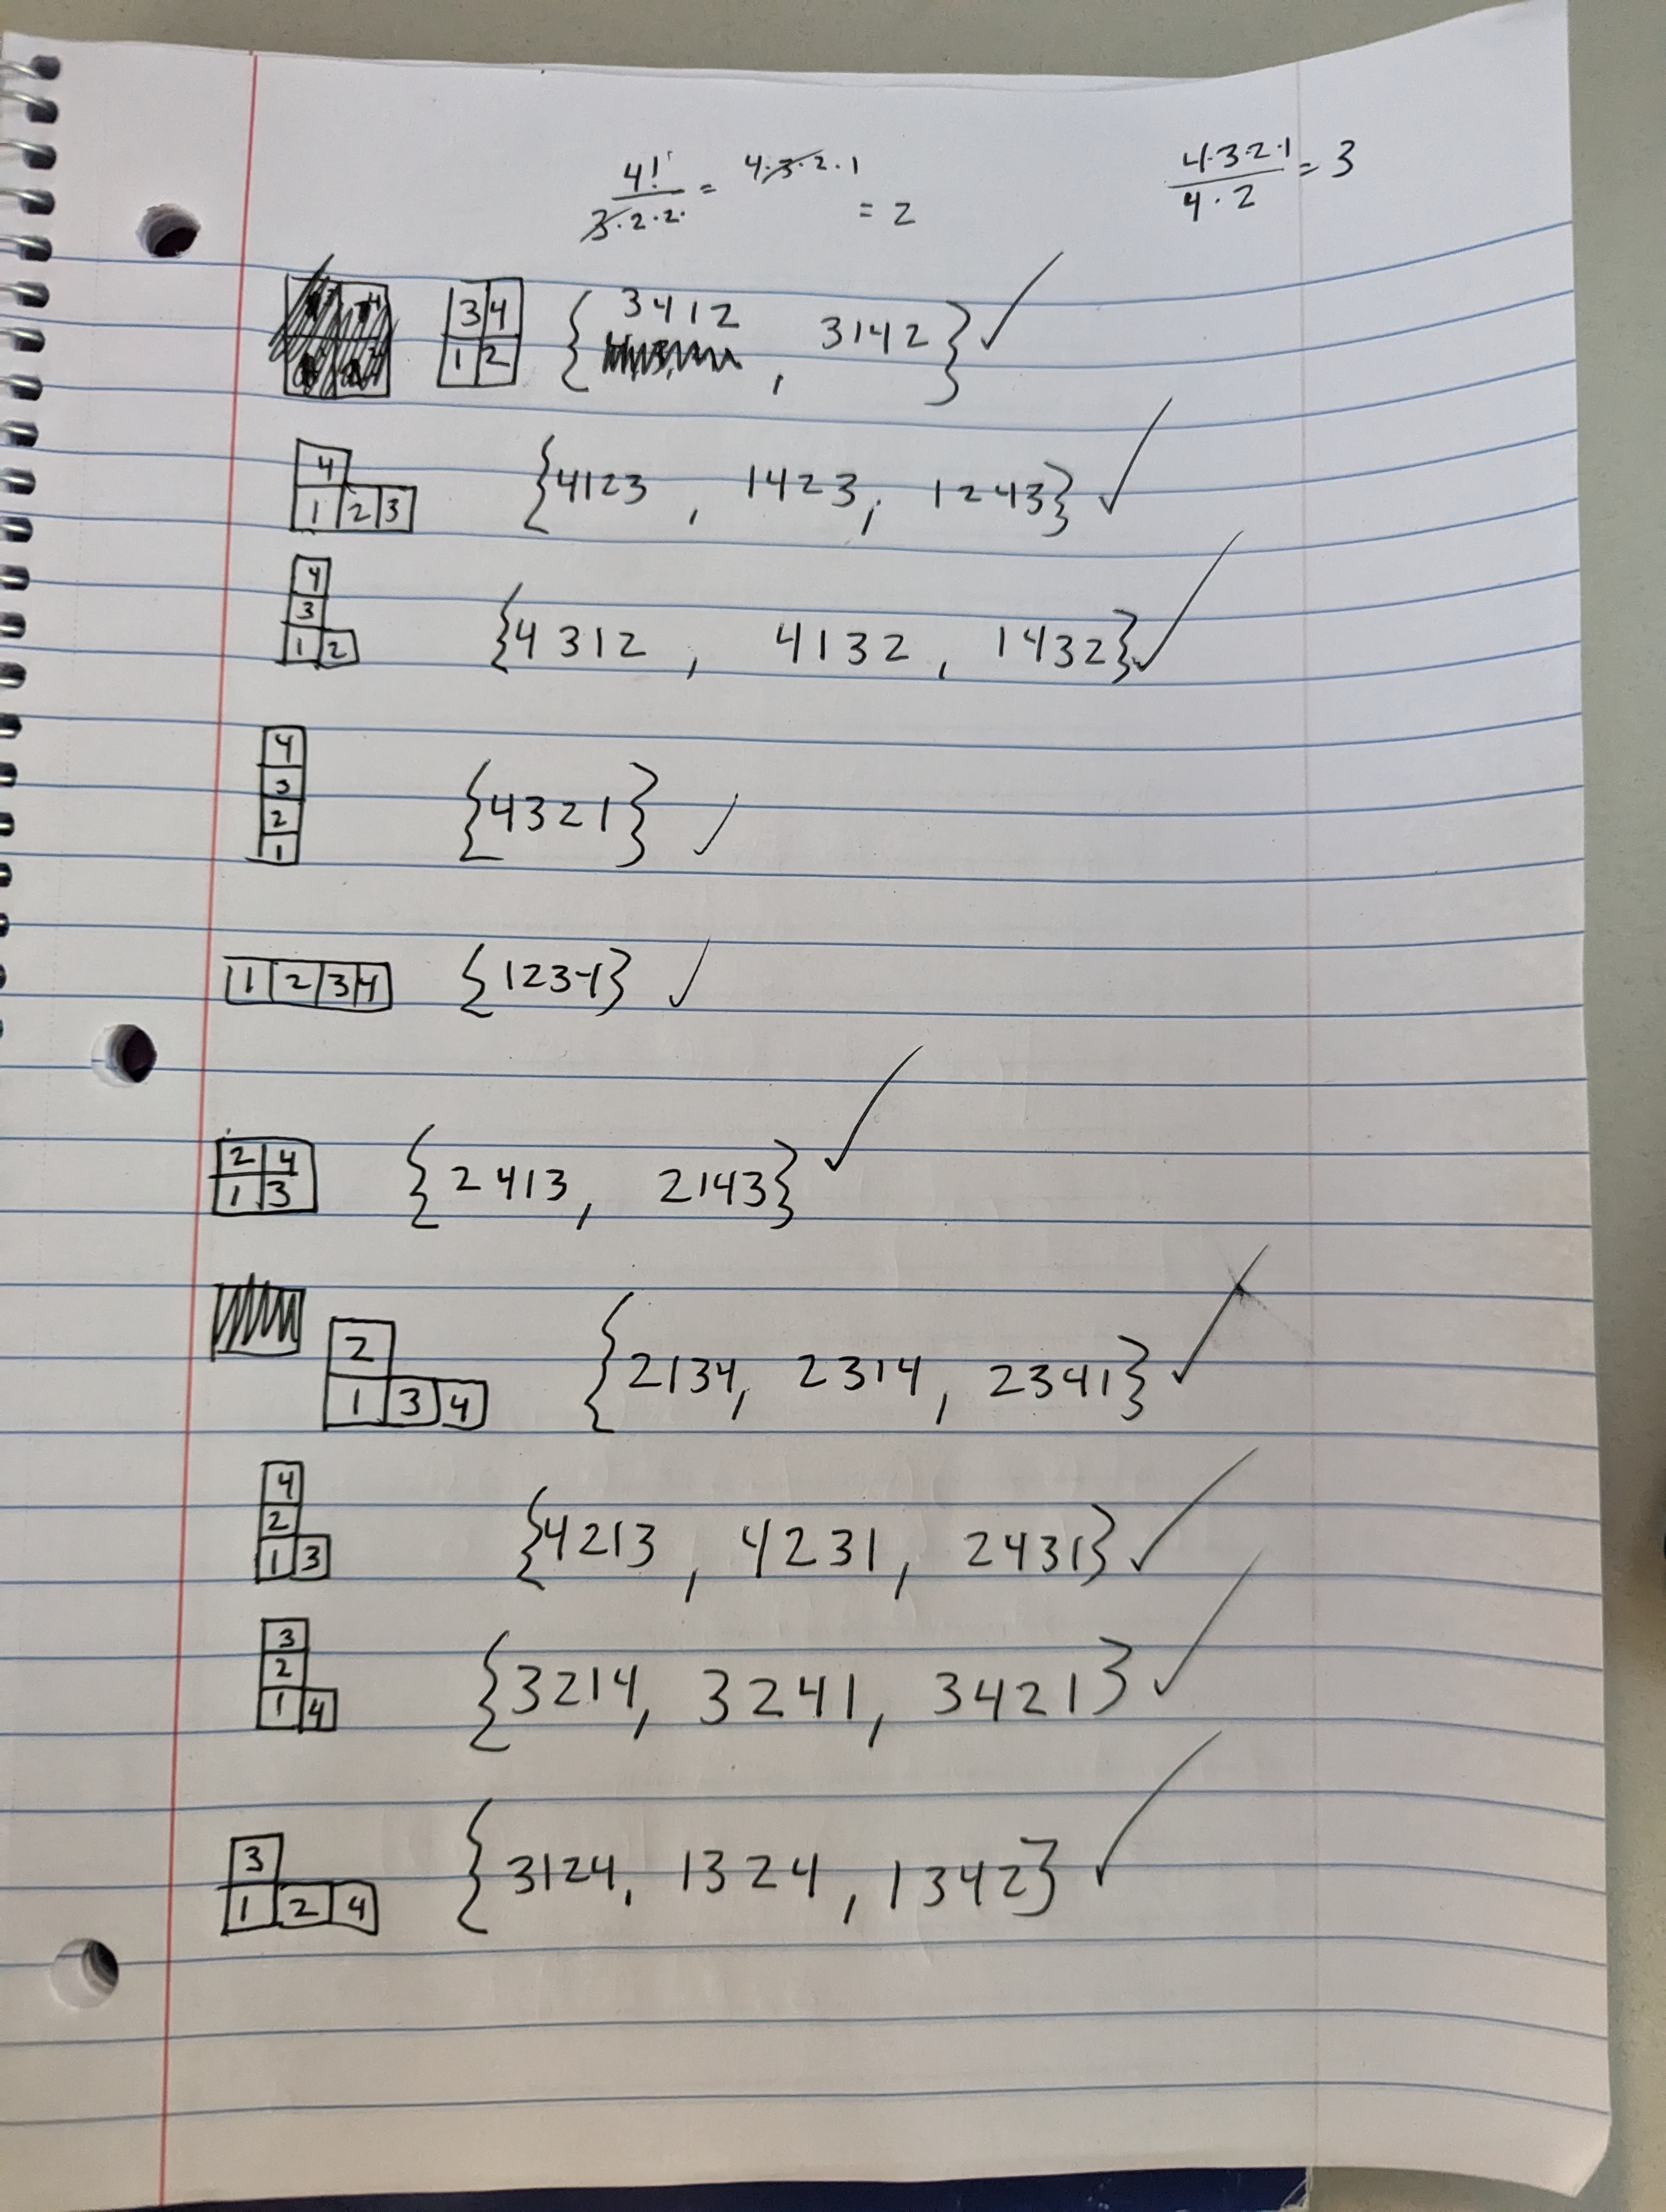 4! / 3·2·2· = 4·3·2·1 = 2    4·3·2·1 / 4·2 = 3
3 4
1 2
{ 3412 , 3142 } ✓
4
1 2 3
{4123 , 1423, 1243} ✓
4
3
1 2
{4312 , 4132 , 1432} ✓
4
3
2
1
{4321} ✓
1 2 3 4 {1234} ✓
2 4
1 3
{2413, 2143} ✓
2
1 3 4
{2134, 2314, 2341} ✓
4
2
1 3
{4213 , 4231, 2431} ✓
3
2
1 4
{3214, 3241, 3421} ✓
3
1 2 4
{3124, 1324, 1342} ✓